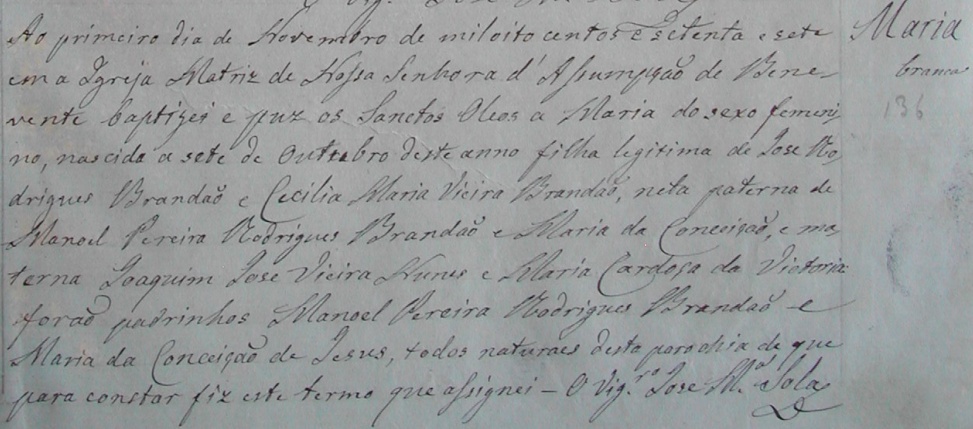 Ao primeiro dia de Novembro de miloito centos e setenta e sete
em a Igreja Matriz de Nossa Senhora d'Assumpção de Bene-
vente baptizei e puz os Sanctos Oleos a Maria do sexo femeni-
no, nascida a sete de Outubro deste anno filha legitima de Jose Ro-
drigues Brandaõ e Cecilia Maria Vieira Brandaõ, neta paterna de
Manoel Pereira Rodrigues Brandaõ e Maria da Conceiçaõ, e ma-
terna Joaquim Jose Vieira Nunes e Maria Cardosa da Victoria
foraõ padrinhos Manoel Pereira Rodrigues Brandaõ e
Maria da Conceiçaõ de Jesus, todos naturaes desta parochia de que
para constar fiz este termo que assignei – O Vig.ro Jose M.a Sola
Maria
branca
136